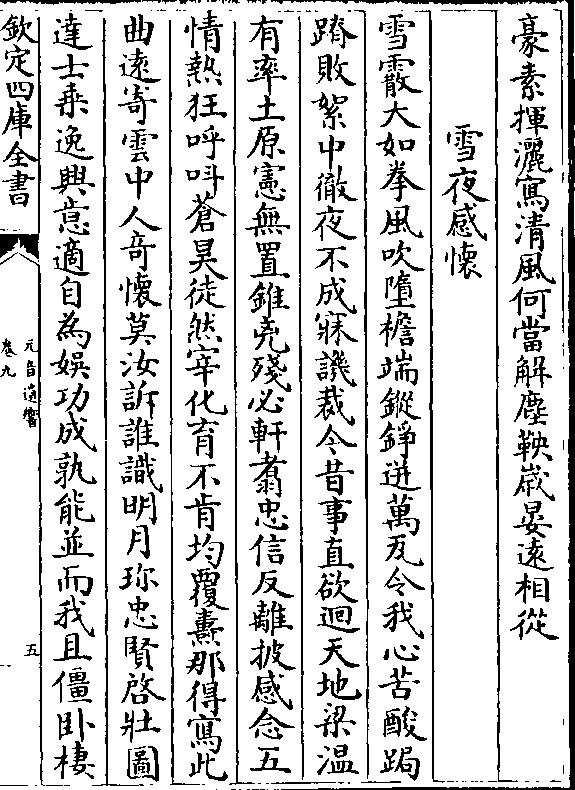 豪素揮灑寫清風何當解塵鞅歲晏遠相從
雪夜感懷
雪霰大如拳風吹墮檐端鏦錚迸萬瓦令我心苦酸跼
蹐敗絮中徹夜不成寐譏裁今昔事直欲迴天地梁溫
有率土原憲無置錐堯殘必軒翥忠信反離披感念五
情熱狂呼呌蒼昊徒然宰化育不肯均覆燾那得寫此
曲遠寄雲中人竒懷莫汝訴誰識明月珍忠賢啓壯圖
達士乗逸興意適自為娛功成孰能並而我且僵卧棲
欽定四庫全書
元音遺響
卷九
五